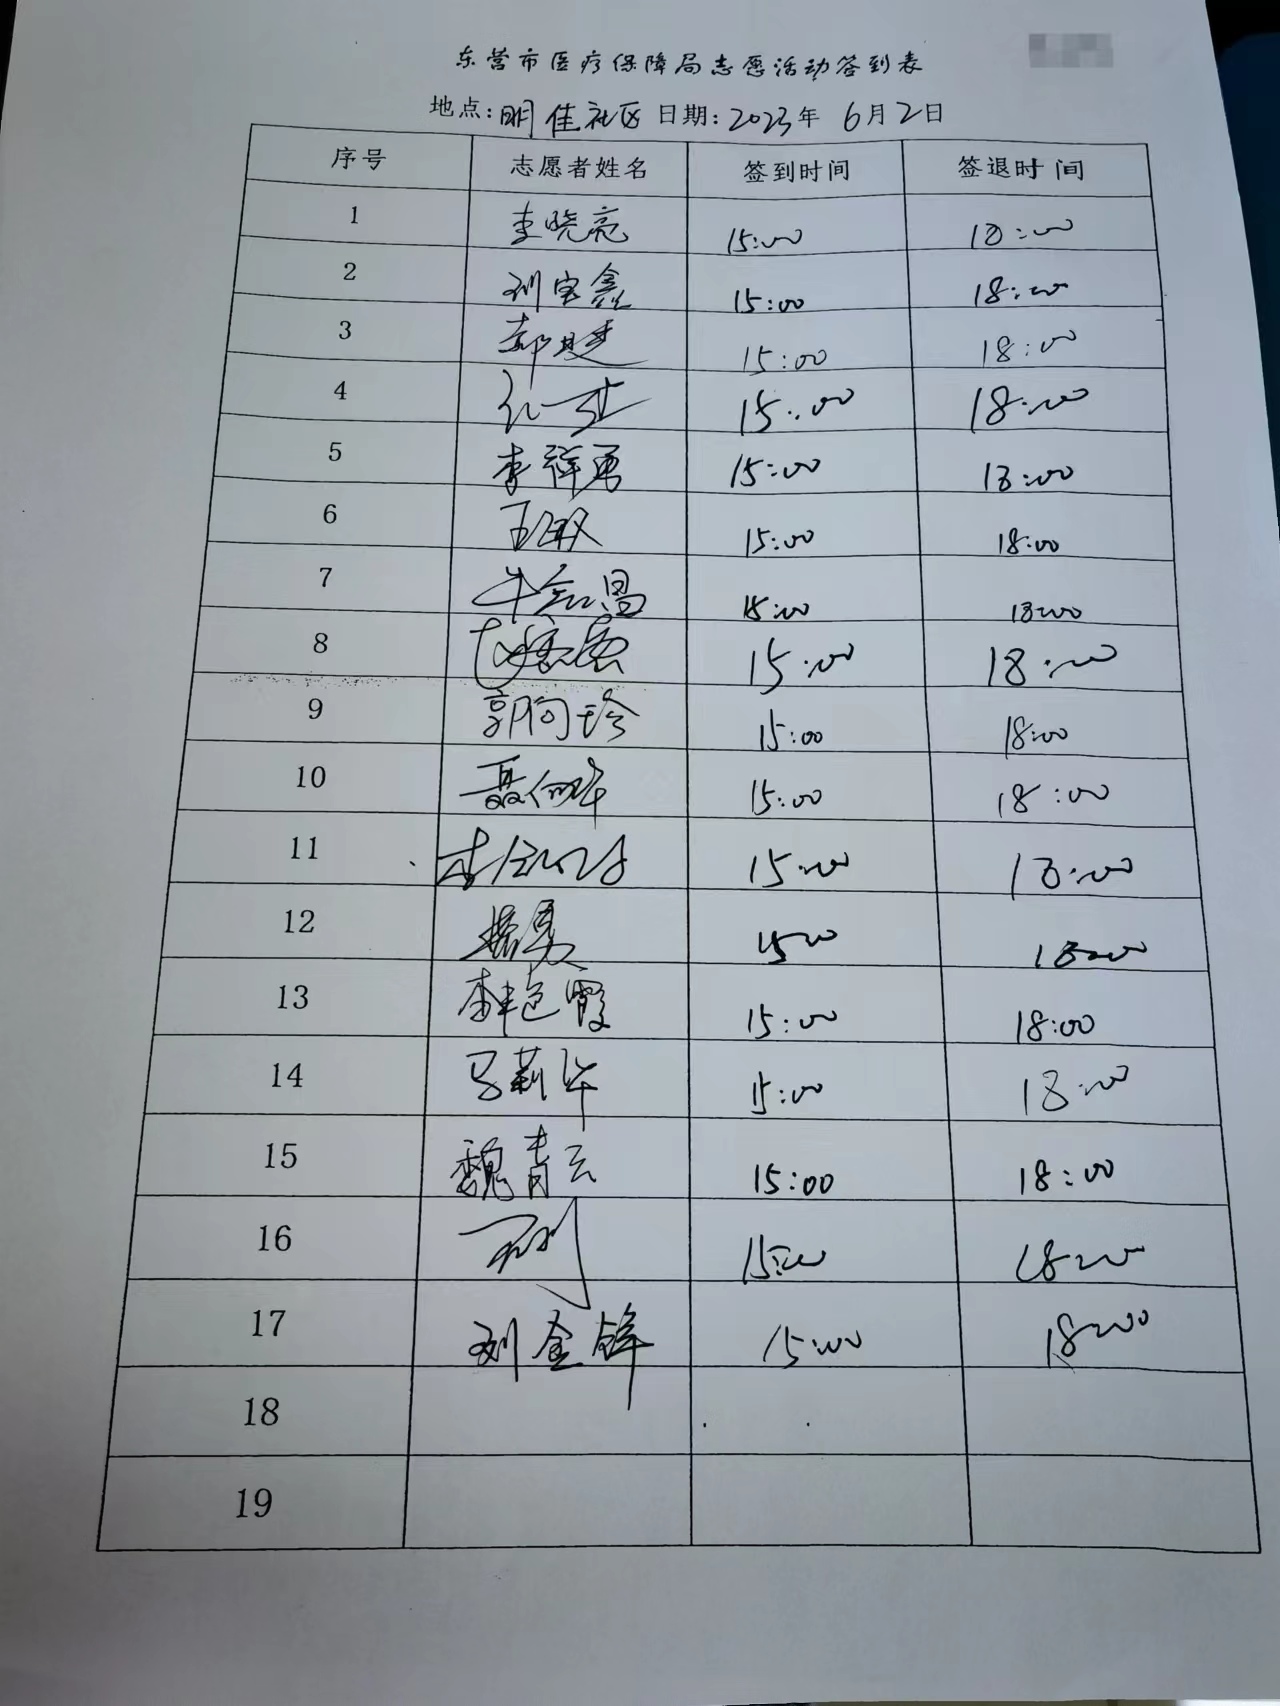 东营市医疗保障局志愿活动签到表
地点：明佳社区 日期：2023年 6月2日
序号 志愿者姓名 签到时间 签退时间
1 李晓亮 15:00 18:00
2 刘宝鑫 15:00 18:00
3 15:00 18:00
4 15:00 18:00
5 李祥勇 15:00 18:00
6 王敏 15:00 18:00
7 15:00 18:00
8 15:00 18:00
9 郭向珍 15:00 18:00
10 15:00 18:00
11 15:00 18:00
12 15:00 18:00
13 15:00 18:00
14 马莉华 15:00 18:00
15 魏青云 15:00 18:00
16 15:00 18:00
17 刘金锋 15:00 18:00
18
19